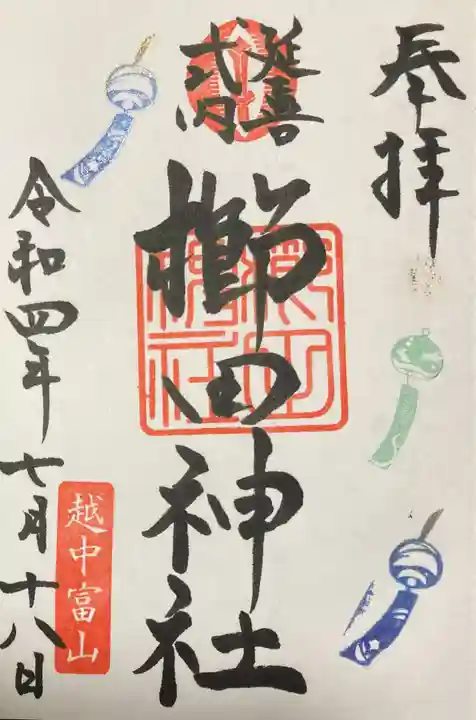 奉拝
延喜
式内
櫛田神社
越中富山
令和四年七月十八日